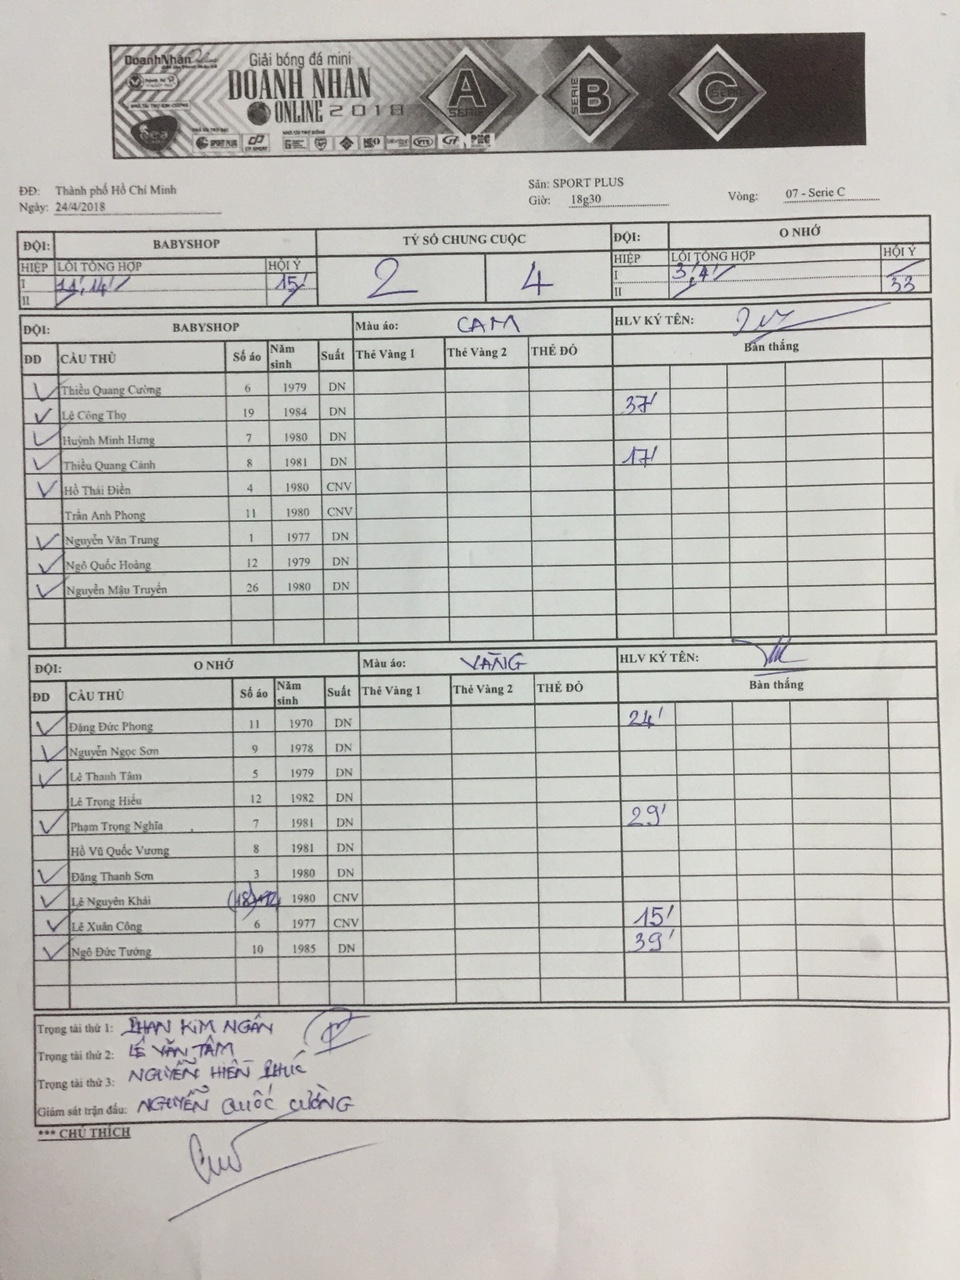 DoanhNhân
Giải bóng đá mini
DOANH NHAN
ONLINE 2018
A SERIE
SERIE B
C SERIE
SPORT PLUS
ĐĐ: Thành phố Hồ Chí Minh Sân: SPORT PLUS
Ngày: 24/4/2018 Giờ: 18g30 Vòng: 07 - Serie C
ĐỘI: BABYSHOP TỶ SỐ CHUNG CUỘC ĐỘI: O NHỚ
HIỆP LỖI TỔNG HỢP HỘI Ý 2 4 HIỆP LỖI TỔNG HỢP HỘI Ý
I 11', 14' 15' I 3', 4'
II II 33
ĐỘI: BABYSHOP Màu áo: CAM HLV KÝ TÊN:
ĐD CẦU THỦ Số áo Năm sinh Suất Thẻ Vàng 1 Thẻ Vàng 2 THẺ ĐỎ Bàn thắng
Thiều Quang Cường 6 1979 DN
Lê Công Thọ 19 1984 DN 37'
Huỳnh Minh Hưng 7 1980 DN
Thiều Quang Cảnh 8 1981 DN 17'
Hồ Thái Điền 4 1980 CNV
Trần Anh Phong 11 1980 CNV
Nguyễn Văn Trung 1 1977 DN
Ngô Quốc Hoàng 12 1979 DN
Nguyễn Mậu Truyền 26 1980 DN
ĐỘI: O NHỚ Màu áo: VÀNG HLV KÝ TÊN:
ĐD CẦU THỦ Số áo Năm sinh Suất Thẻ Vàng 1 Thẻ Vàng 2 THẺ ĐỎ Bàn thắng
Đặng Đức Phong 11 1970 DN 24'
Nguyễn Ngọc Sơn 9 1978 DN
Lê Thanh Tâm 5 1979 DN
Lê Trọng Hiếu 12 1982 DN
Phạm Trọng Nghĩa 7 1981 DN 29'
Hồ Vũ Quốc Vương 8 1981 DN
Đặng Thanh Sơn 3 1980 DN
Lê Nguyên Khải (18) 1980 CNV
Lê Xuân Công 6 1977 CNV 15'
Ngô Đức Tướng 10 1985 DN 39'
Trọng tài thứ 1: PHAN KIM NGÂN
Trọng tài thứ 2: LÊ VĂN TÂM
Trọng tài thứ 3: NGUYỄN HIỀN PHÚC
Giám sát trận đấu: NGUYỄN QUỐC CƯỜNG
*** CHÚ THÍCH